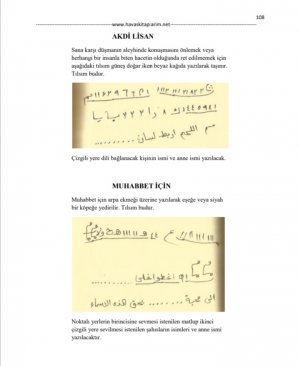 108
www.havaskitaprim.net
AKDİ LİSAN
Sana karşı düşmanın aleyhinde konuşmasını önlemek veya
herhangi bir insanla biten hacetin olduğunda ret edilmemek için
aşağıdaki tılsım güneş doğar iken beyaz kağıda yazılarak taşınır.
Tılsım budur.
اللهم اربط لسان
Çizgili yere dili bağlanacak kişinin ismi ve anne ismi yazılacak.
MUHABBET İÇİN
Muhabbet için arpa ekmeği üzerine yazılarak eşeğe veya siyah
bir köpeğe yedirilir. Tılsım budur.
بحق هذه الاسماء
Noktalı yerlerin birincisine sevmesi istenilen matlup ikinci
çizgili yere sevilmesi istenilen şahısların isimleri ve anne ismi
yazılacaktır.